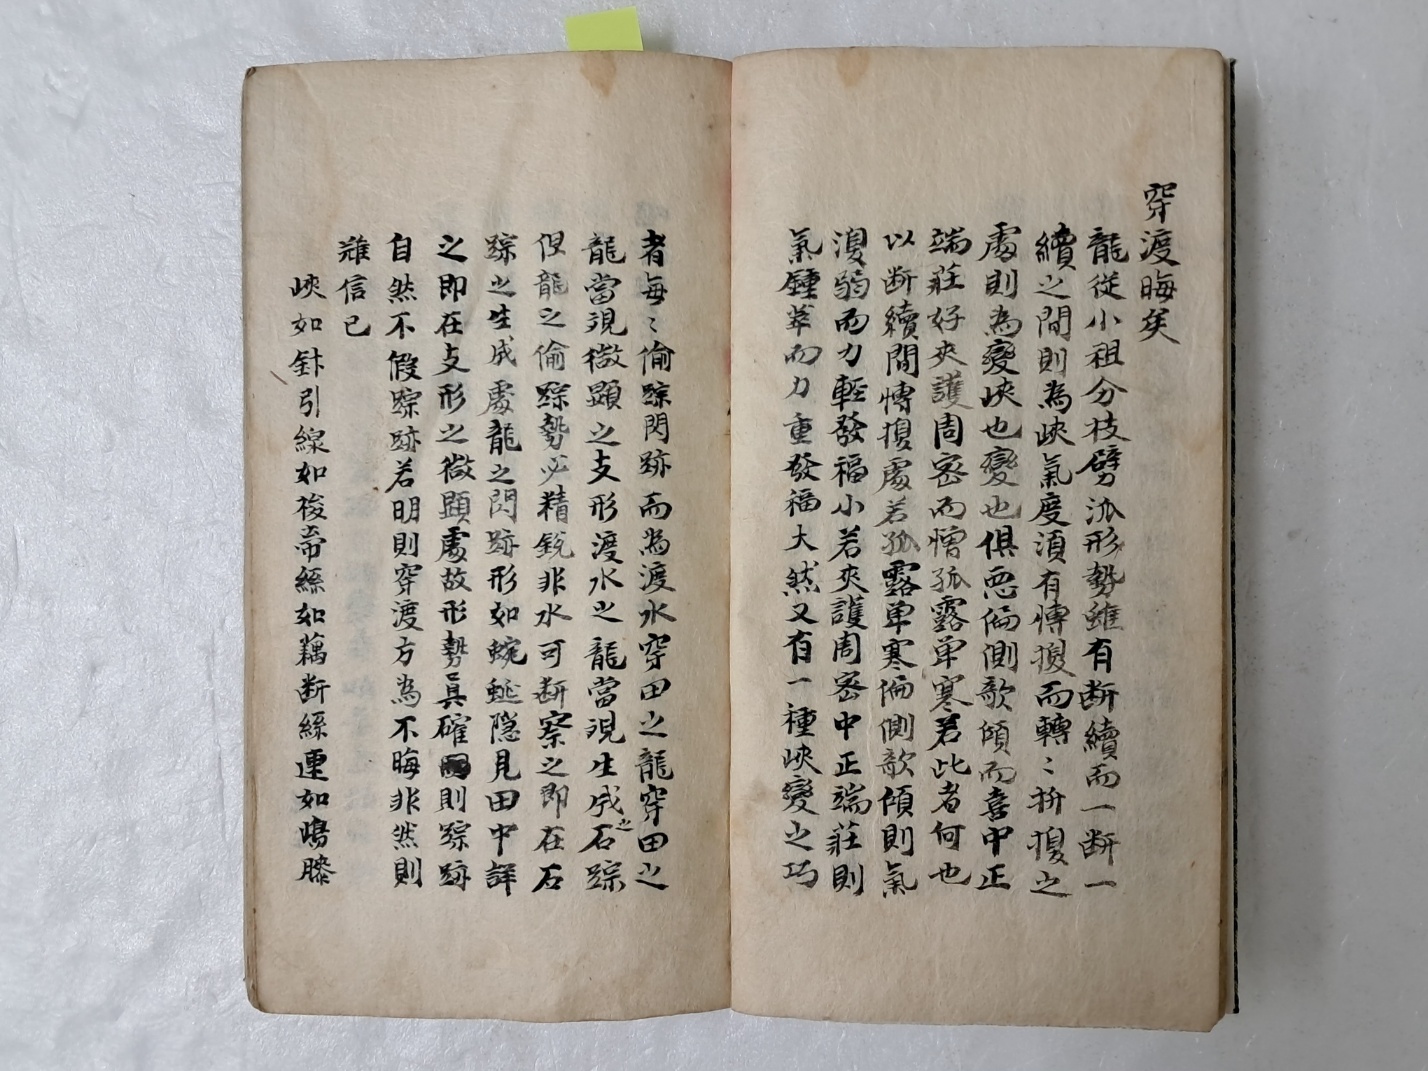 穿渡晦矣
龍從小祖分枝劈派形勢雖有断續而一断一
續之間則為峽氣度湏有愽換而轉〻折換之
處則為變峽也變也俱惡偏側欹傾而喜中正
端莊好夾護周密而憎孤露单寒若此者何也
以断續間愽換處若孤露单寒偏側欹傾則氣
漫弱而力輕發福小若夾護周密中正端莊則
氣鍾萃而力重發福大然又有一種峽變之巧
者每〻偷踪閃跡而為渡水穿田之龍穿田之
龍當現微顕之支形渡水之龍當現生成之石踪
但龍之偷踪勢必精銳非水可断察之即在石
踪之生成處龍之閃跡形如蜿蜒隐見田中詳
之即在支形之微顕處故形勢真確則踪跡
自然不假踪跡若明則穿渡方為不晦非然則
難信已
峽如針引線如梭帶絲如藕断絲連如鶴膝